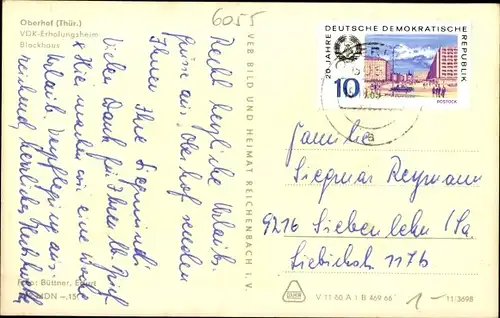 Oberhof (Thür.)
VDK-Erholungsheim
Blockhaus
6055
Recht herzliche Urlaubs-
grüsse aus Oberhof senden
Ihnen Ihre
Vielen Dank für Ihren lb. Brief
Hier machen wir eine Woche
Urlaub. Verpflegung aus-
reichend, herrliches
Foto: Büttner, Erfurt
MDN -,15
VEB BILD UND HEIMAT REICHENBACH I. V.
20 JAHRE DEUTSCHE DEMOKRATISCHE REPUBLIK
10
ROSTOCK
Familie
Siegmar Reymann
9216 Siebenlehn/Sa.
Liebichstr. 117b
V 11 60 A 1 B 469 66
1-
11/3698